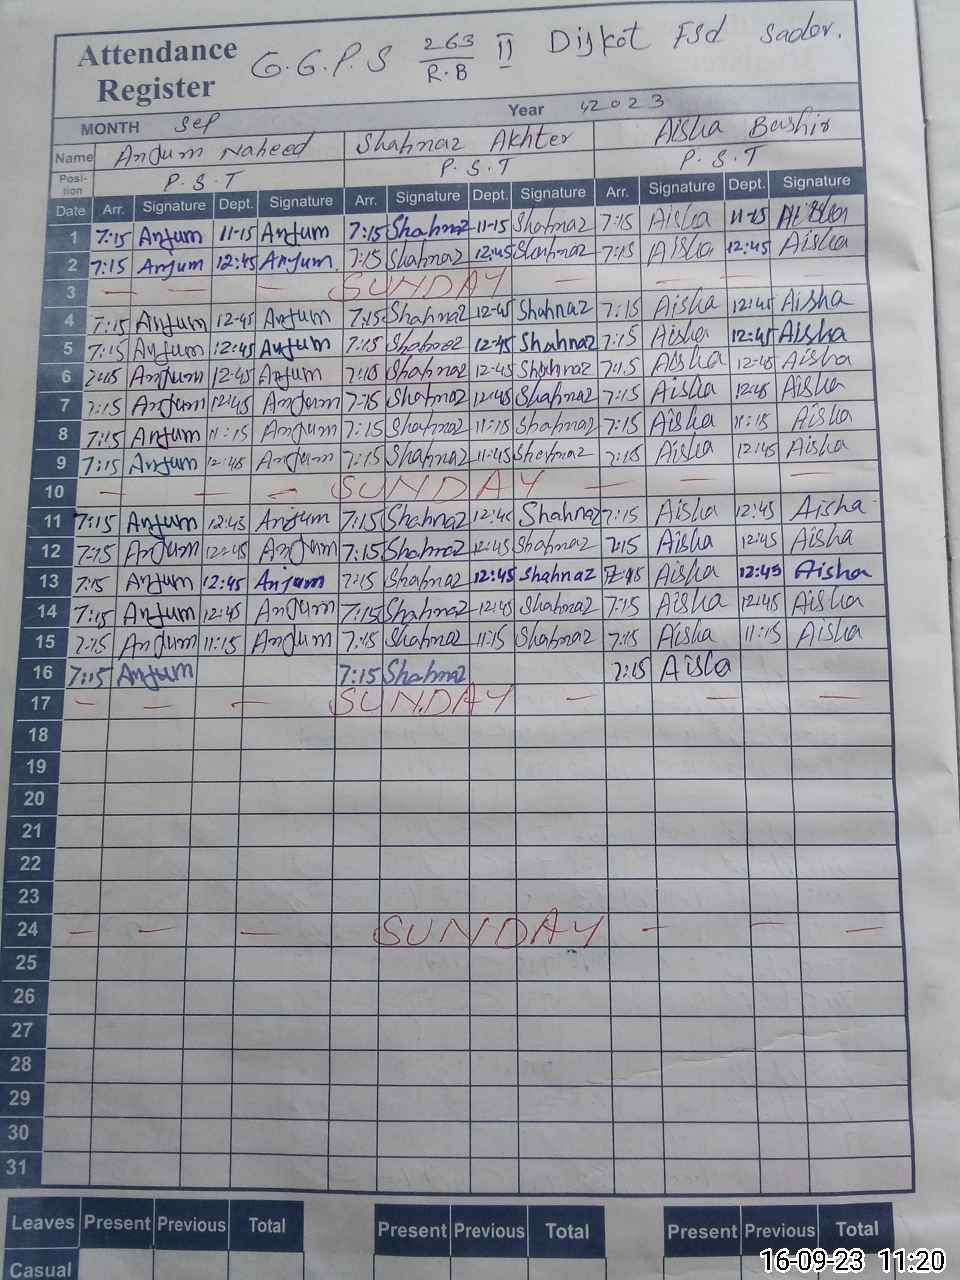 Attendance Register G.G.P.S 263/R.B II Dijkot Fsd Sador.
MONTH Sep Year 2023
Name Anjum Naheed Shahnaz Akhter Aisha Bashir
Position P.S.T P.S.T P.S.T
Date Arr. Signature Dept. Signature Arr. Signature Dept. Signature Arr. Signature Dept. Signature
1 7:15 Anjum 11-15 Anjum 7:15 Shahnaz 11-15 Shahnaz 7:15 Aisha 11-15 Aisha
2 7:15 Anjum 12:45 Anjum. 7:15 Shahnaz 12:45 Shahnaz 7:15 Aisha 12:45 Aisha
3 — — — SUNDAY — — —
4 7:15 Anjum 12-45 Anjum 7:15 Shahnaz 12-45 Shahnaz 7:15 Aisha 12:45 Aisha
5 7:15 Anjum 12:45 Anjum 7:15 Shahnaz 12-45 Shahnaz 7:15 Aisha 12:45 Aisha
6 Anjum 12-45 Anjum Shahnaz 12-45 Shahnaz Aisha 12-45 Aisha
7 7:15 Anjum 12:45 Anjum 7:15 Shahnaz 12:45 Shahnaz 7:15 Aisha 12:45 Aisha
8 7:15 Anjum 11:15 Anjum 7:15 Shahnaz 11:15 Shahnaz 7:15 Aisha 11:15 Aisha
9 7:15 Anjum 12:45 Anjum 7:15 Shahnaz 11:45 Shahnaz 7:15 Aisha 12:45 Aisha
10 — — — SUNDAY — — —
11 7:15 Anjum 12:45 Anjum 7:15 Shahnaz Shahnaz 7:15 Aisha 12:45 Aisha
12 7:15 Anjum 12:45 Anjum 7:15 Shahnaz 12:45 Shahnaz 7:15 Aisha 12:45 Aisha
13 7:15 Anjum 12:45 Anjum 7:15 Shahnaz 12:45 Shahnaz 7:15 Aisha 12:45 Aisha
14 7:15 Anjum 12:45 Anjum 7:15 Shahnaz 12:45 Shahnaz 7:15 Aisha 12:45 Aisha
15 7:15 Anjum 11:15 Anjum 7:15 Shahnaz 11:15 Shahnaz 7:15 Aisha 11:15 Aisha
16 7:15 Anjum 7:15 Shahnaz 7:15 Aisha
17 — — — SUNDAY — — —
18
19
20
21
22
23
24 — — — SUNDAY — — —
25
26
27
28
29
30
31
Leaves Present Previous Total Present Previous Total Present Previous Total
Casual
16-09-23 11:20